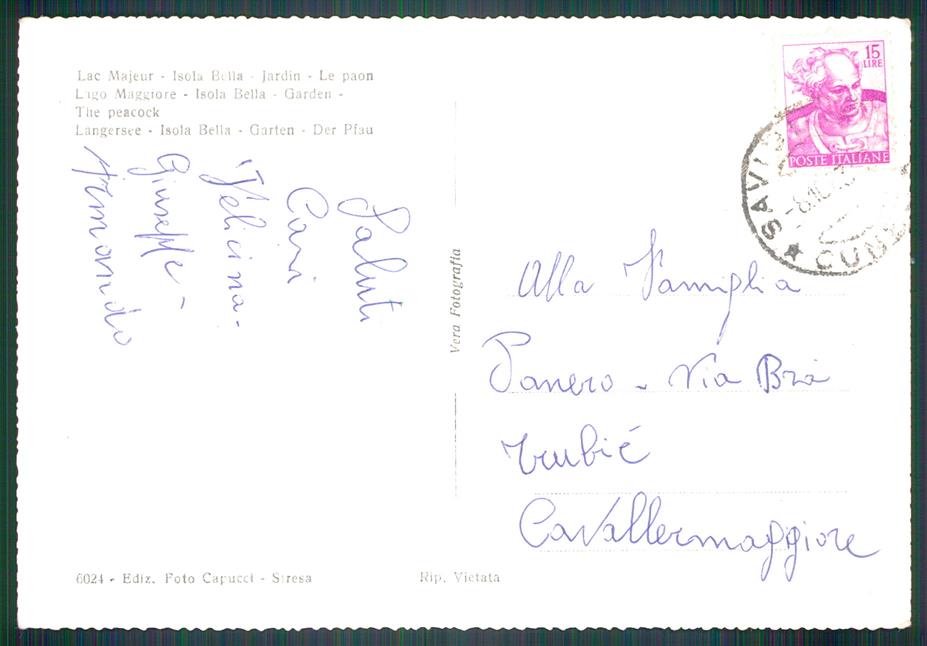 Lac Majeur - Isola Bella - Jardin - Le paon
Lago Maggiore - Isola Bella - Garden -
The peacock
Langersee - Isola Bella - Garten - Der Pfau
Saluti
Cari
Felicina -
Giuseppe -
Armando
Vera Fotografia
15
LIRE
POSTE ITALIANE
SAVI
CUN
Alla Famiglia
Panero - Via Bra
Cavallermaggiore
6024 - Ediz. Foto Capucci - Stresa
Rip. Vietata